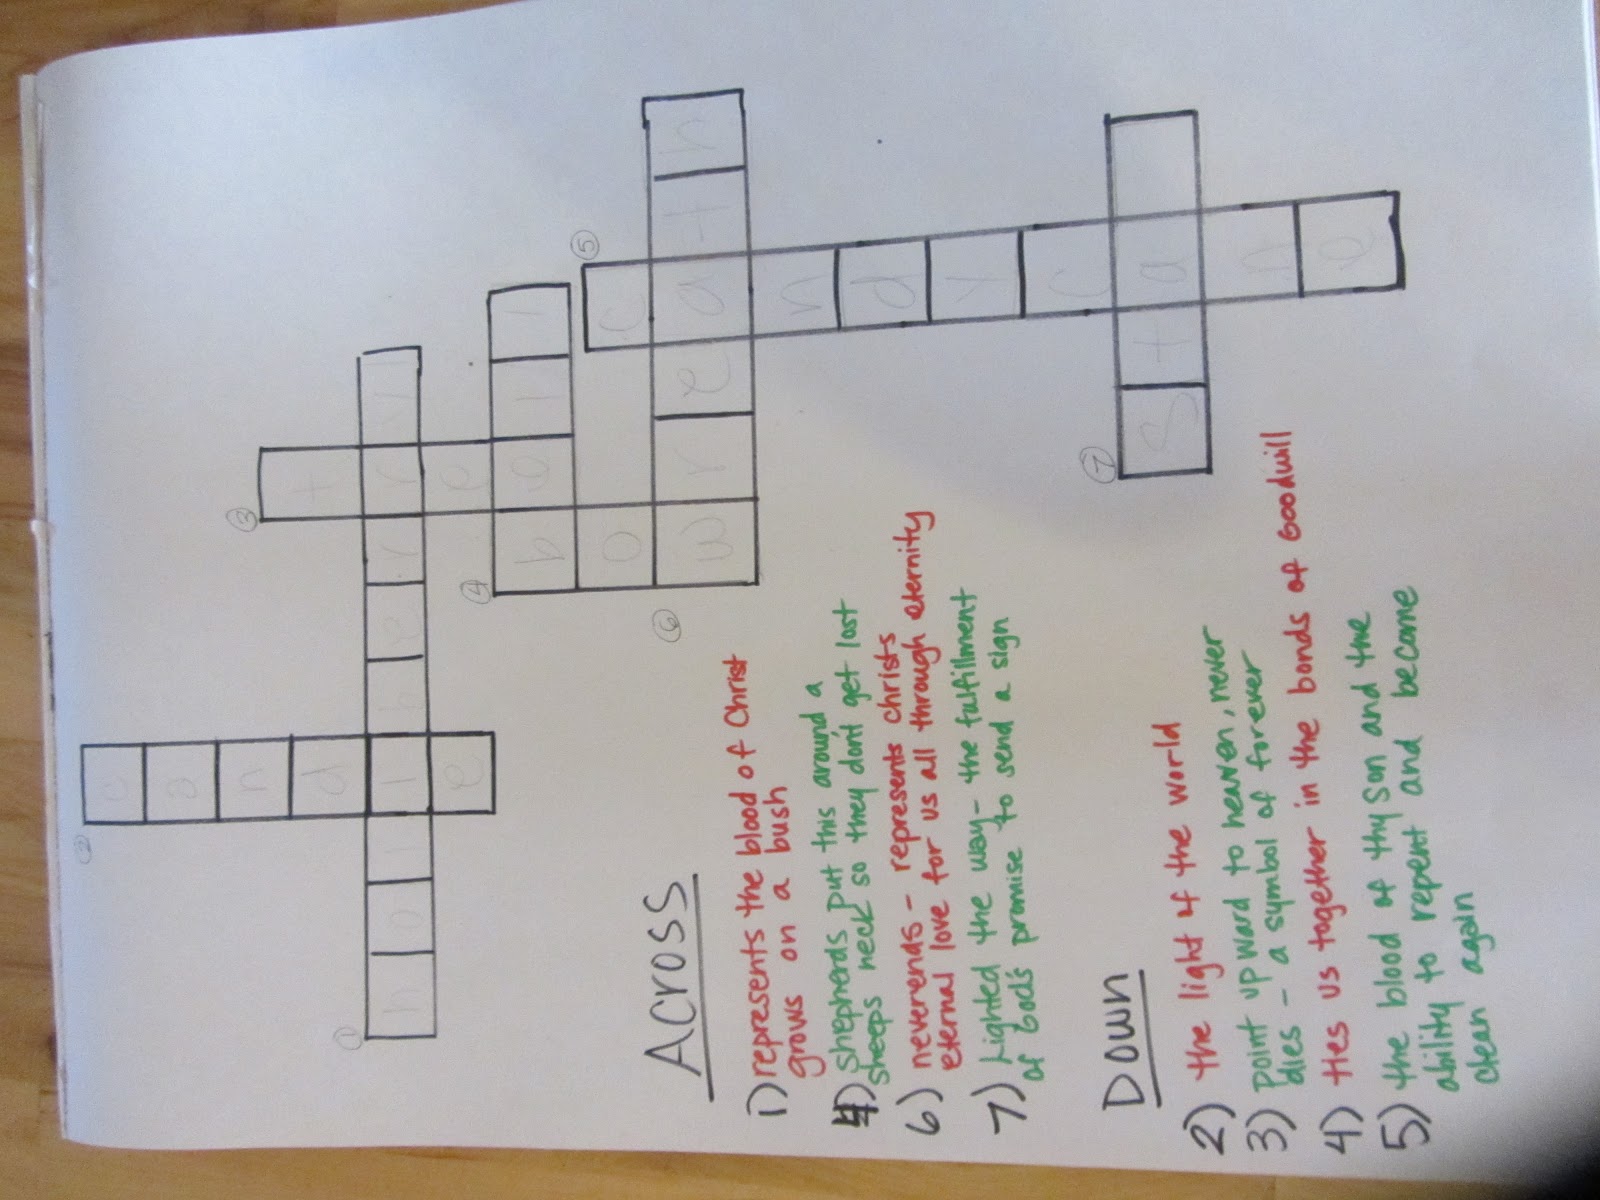 2
candle
1
hollberry
3
tree
4
bell
bow
5
candycane
6
wreath
7
sta
Across
1) represents the blood of Christ
grows on a bush
4) shepherds put this around a
sheeps neck so they don't get lost
6) neverends - represents christs
eternal love for us all through eternity
7) Lighted the way - the fulfillment
of God's promise to send a sign
Down
2) the light of the world
3) point upward to heaven, never
dies - a symbol of forever
4) ties us together in the bonds of Goodwill
5) the blood of thy son and the
ability to repent and become
clean again